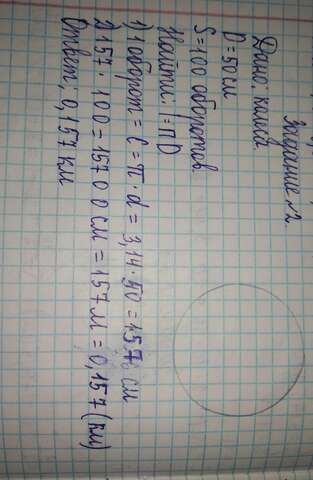 Задание №2
Дано: колесо
D = 50 см
S = 100 оборотов
Найти: l = π D
1) 1 оборот = C = π · d = 3,14 · 50 = 157 см
2) 157 · 100 = 15700 см = 157 м = 0,157 (км)
Ответ: 0,157 км